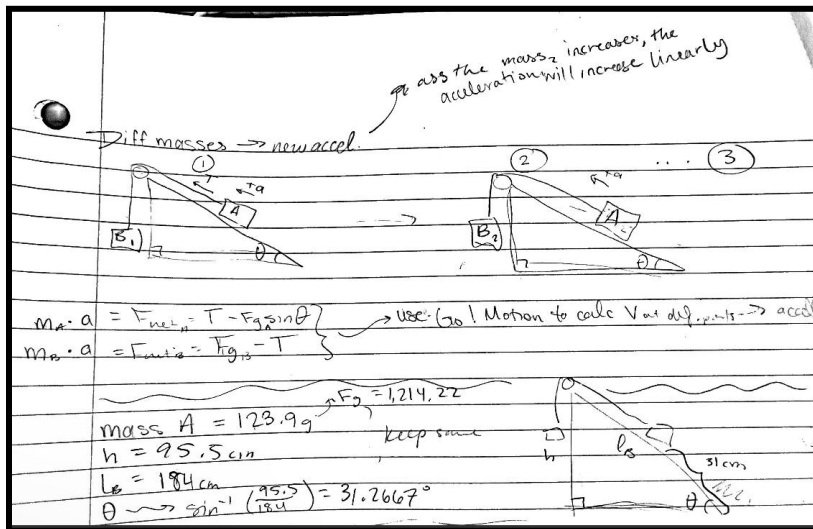 ass the mass₂ increases, the
acceleration will increase linearly
Diff masses → new accel.
① ② .... ③
T +a +a
A A
B₁ B₂
θ θ
mA · a = FnetA = T - FgA sinθ
mB · a = FnetB = FgB - T
→ use Go! Motion to calc V at dif. points → accel
mass A = 123.9g → Fg = 1,214.22
keep same
h = 95.5cm
LB = 184cm
θ → sin⁻¹ (95.5/184) = 31.2667°
h
lB
31cm
θ